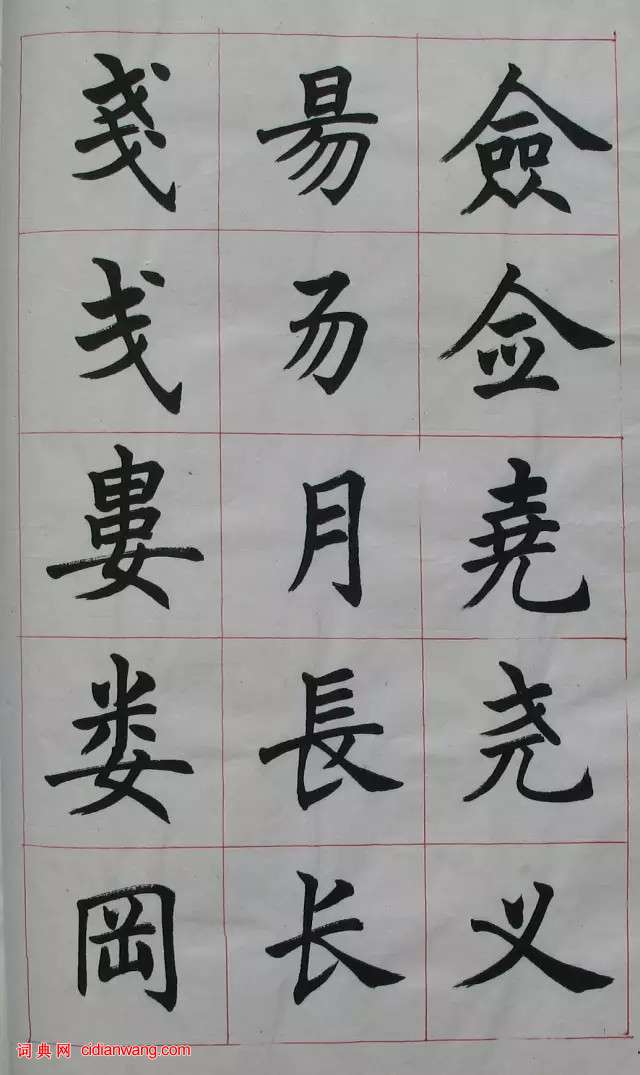 僉佥堯尧义
昜𠃓月長长
戔戋婁娄岡
词典网 cidianwang.com